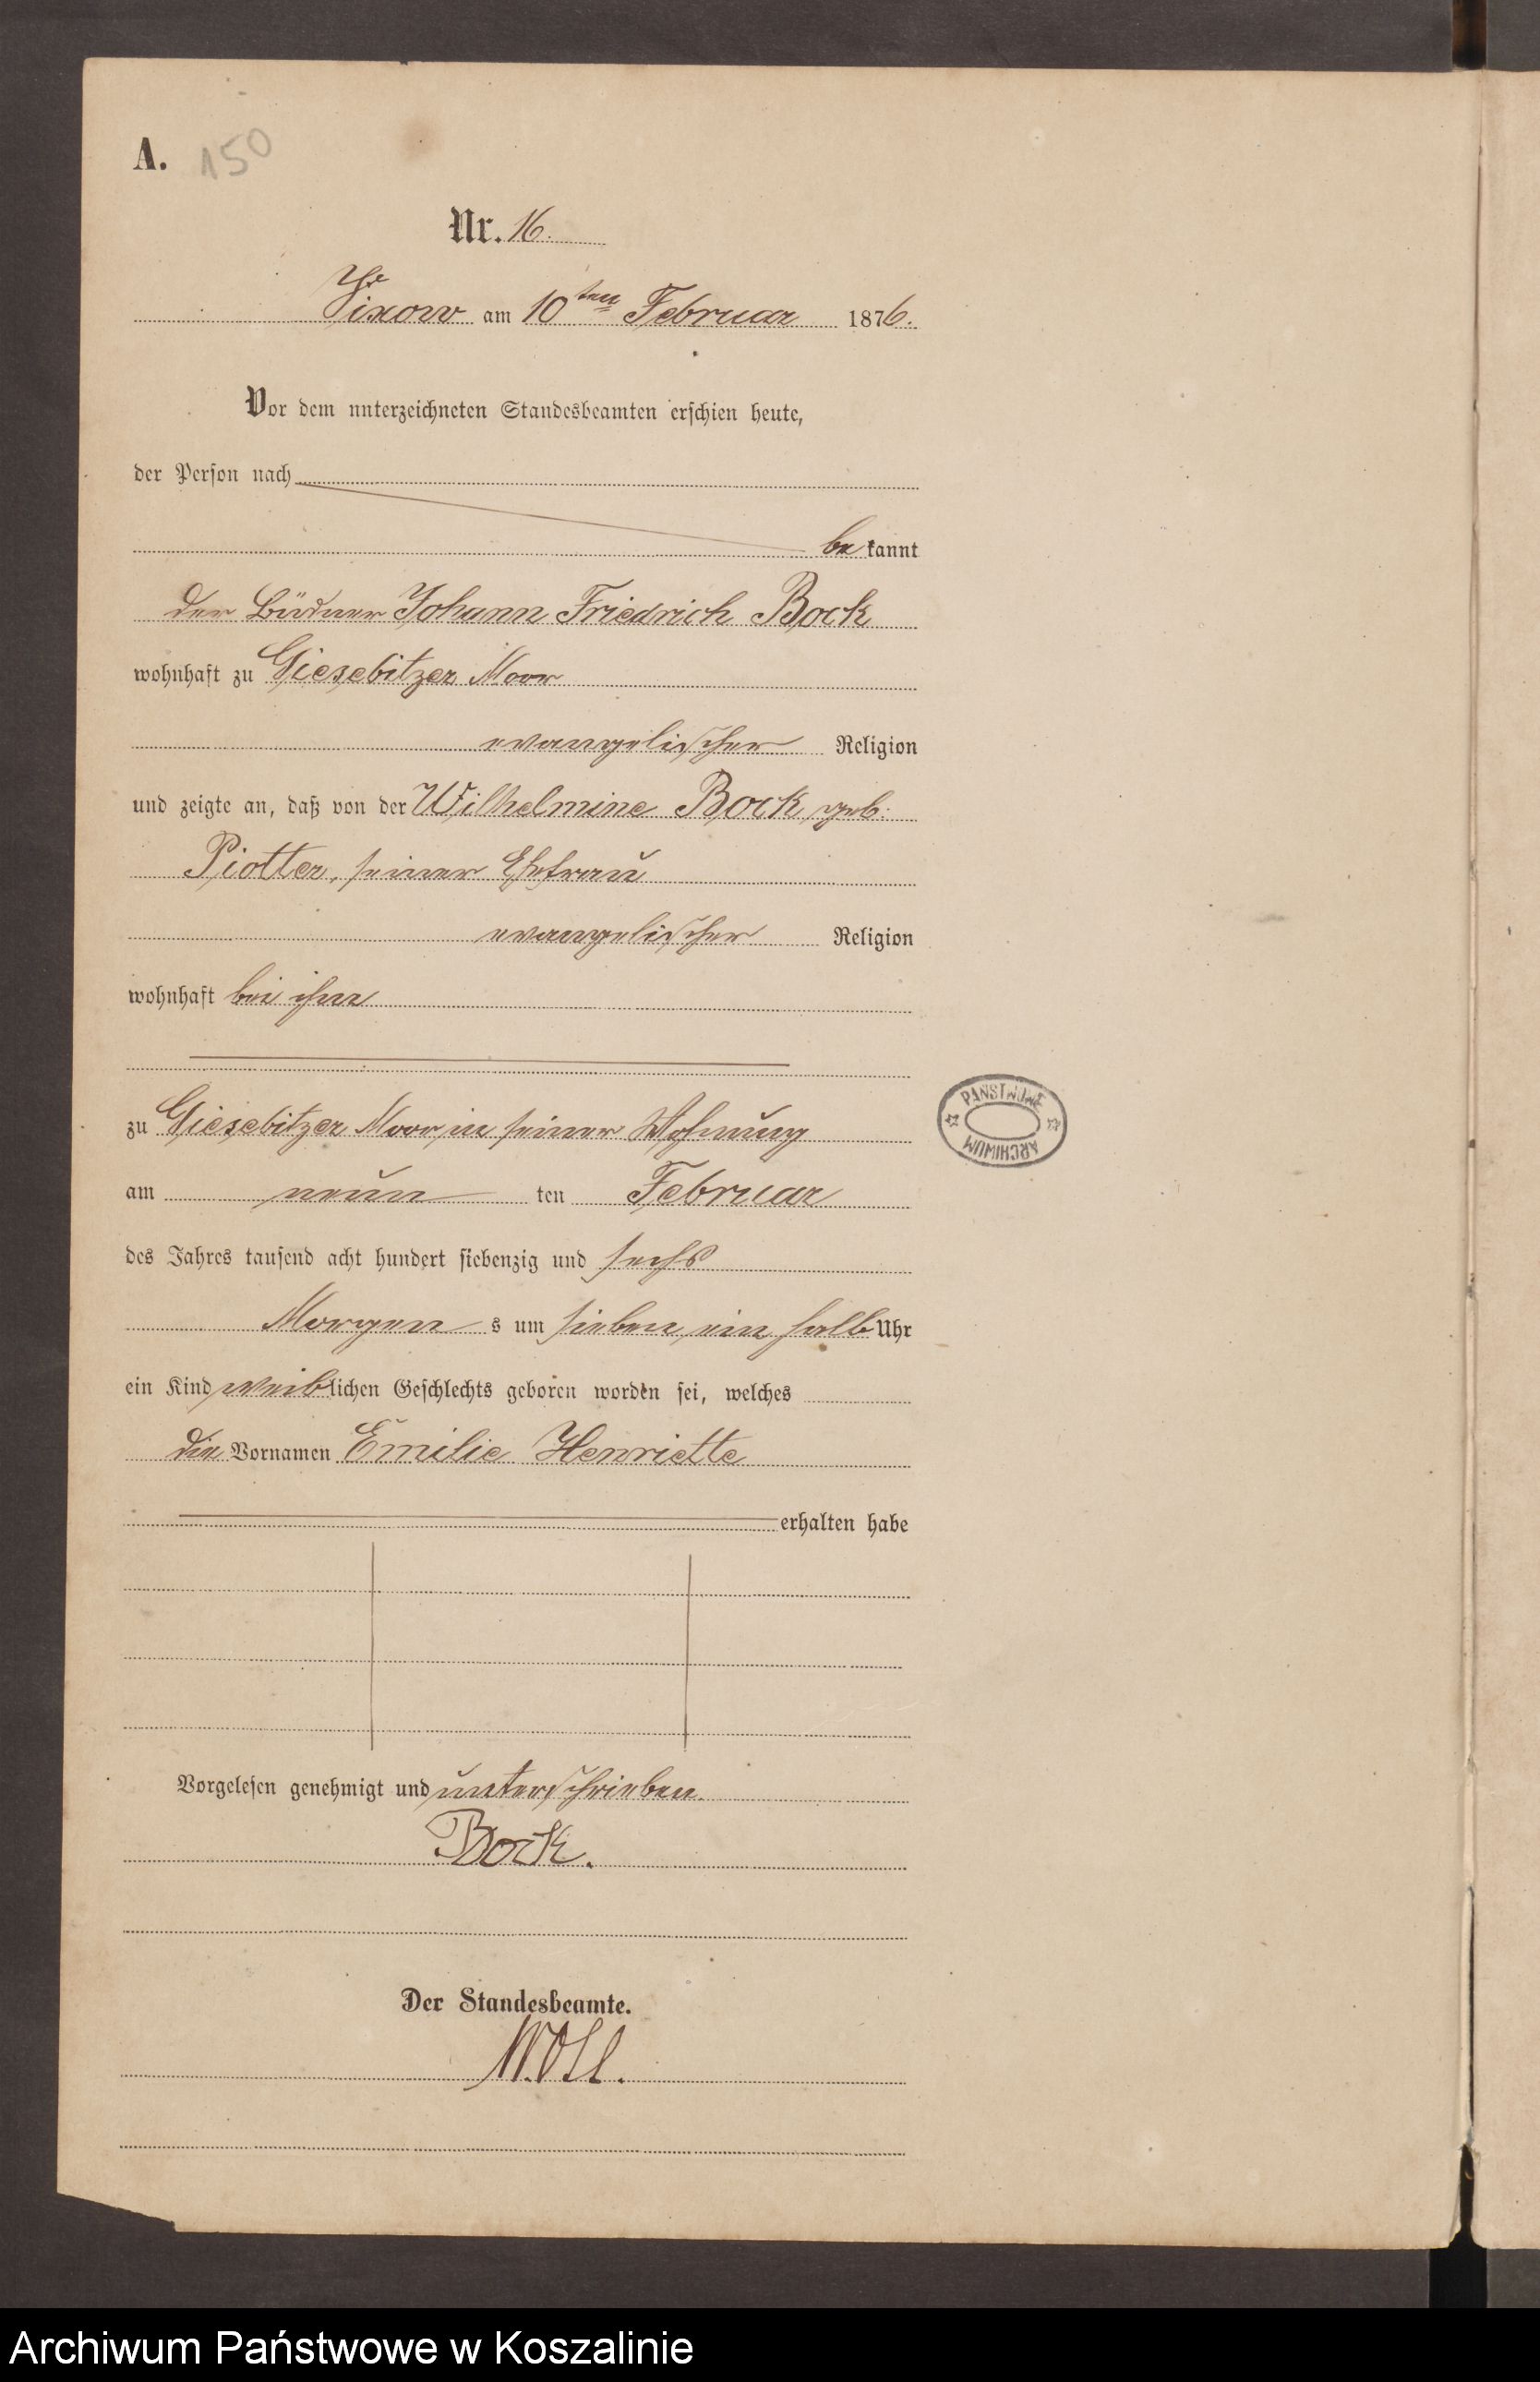 A. 150
Nr. 16.
Vixow am 10ten Februar 1876.
Vor dem unterzeichneten Standesbeamten erschien heute,
der Person nach
bekannt
der Büdner Johann Friedrich Bock
wohnhaft zu Giesebitzer Moor
evangelischer Religion
und zeigte an, daß von der Wilhelmine Bock geb.
Piotter, seiner Ehefrau
evangelischer Religion
wohnhaft bei ihm
zu Giesebitzer Moor in seiner Wohnung
am neun ten Februar
des Jahres tausend acht hundert siebenzig und sechs
Morgen s um sieben ein halb Uhr
ein Kind weiblichen Geschlechts geboren worden sei, welches
die Vornamen Emilie Henriette
erhalten habe
Vorgelesen genehmigt und unterschrieben.
Bock.
Der Standesbeamte.
Woll.
PAŃSTWOWE
ARCHIWUM
Archiwum Państwowe w Koszalinie